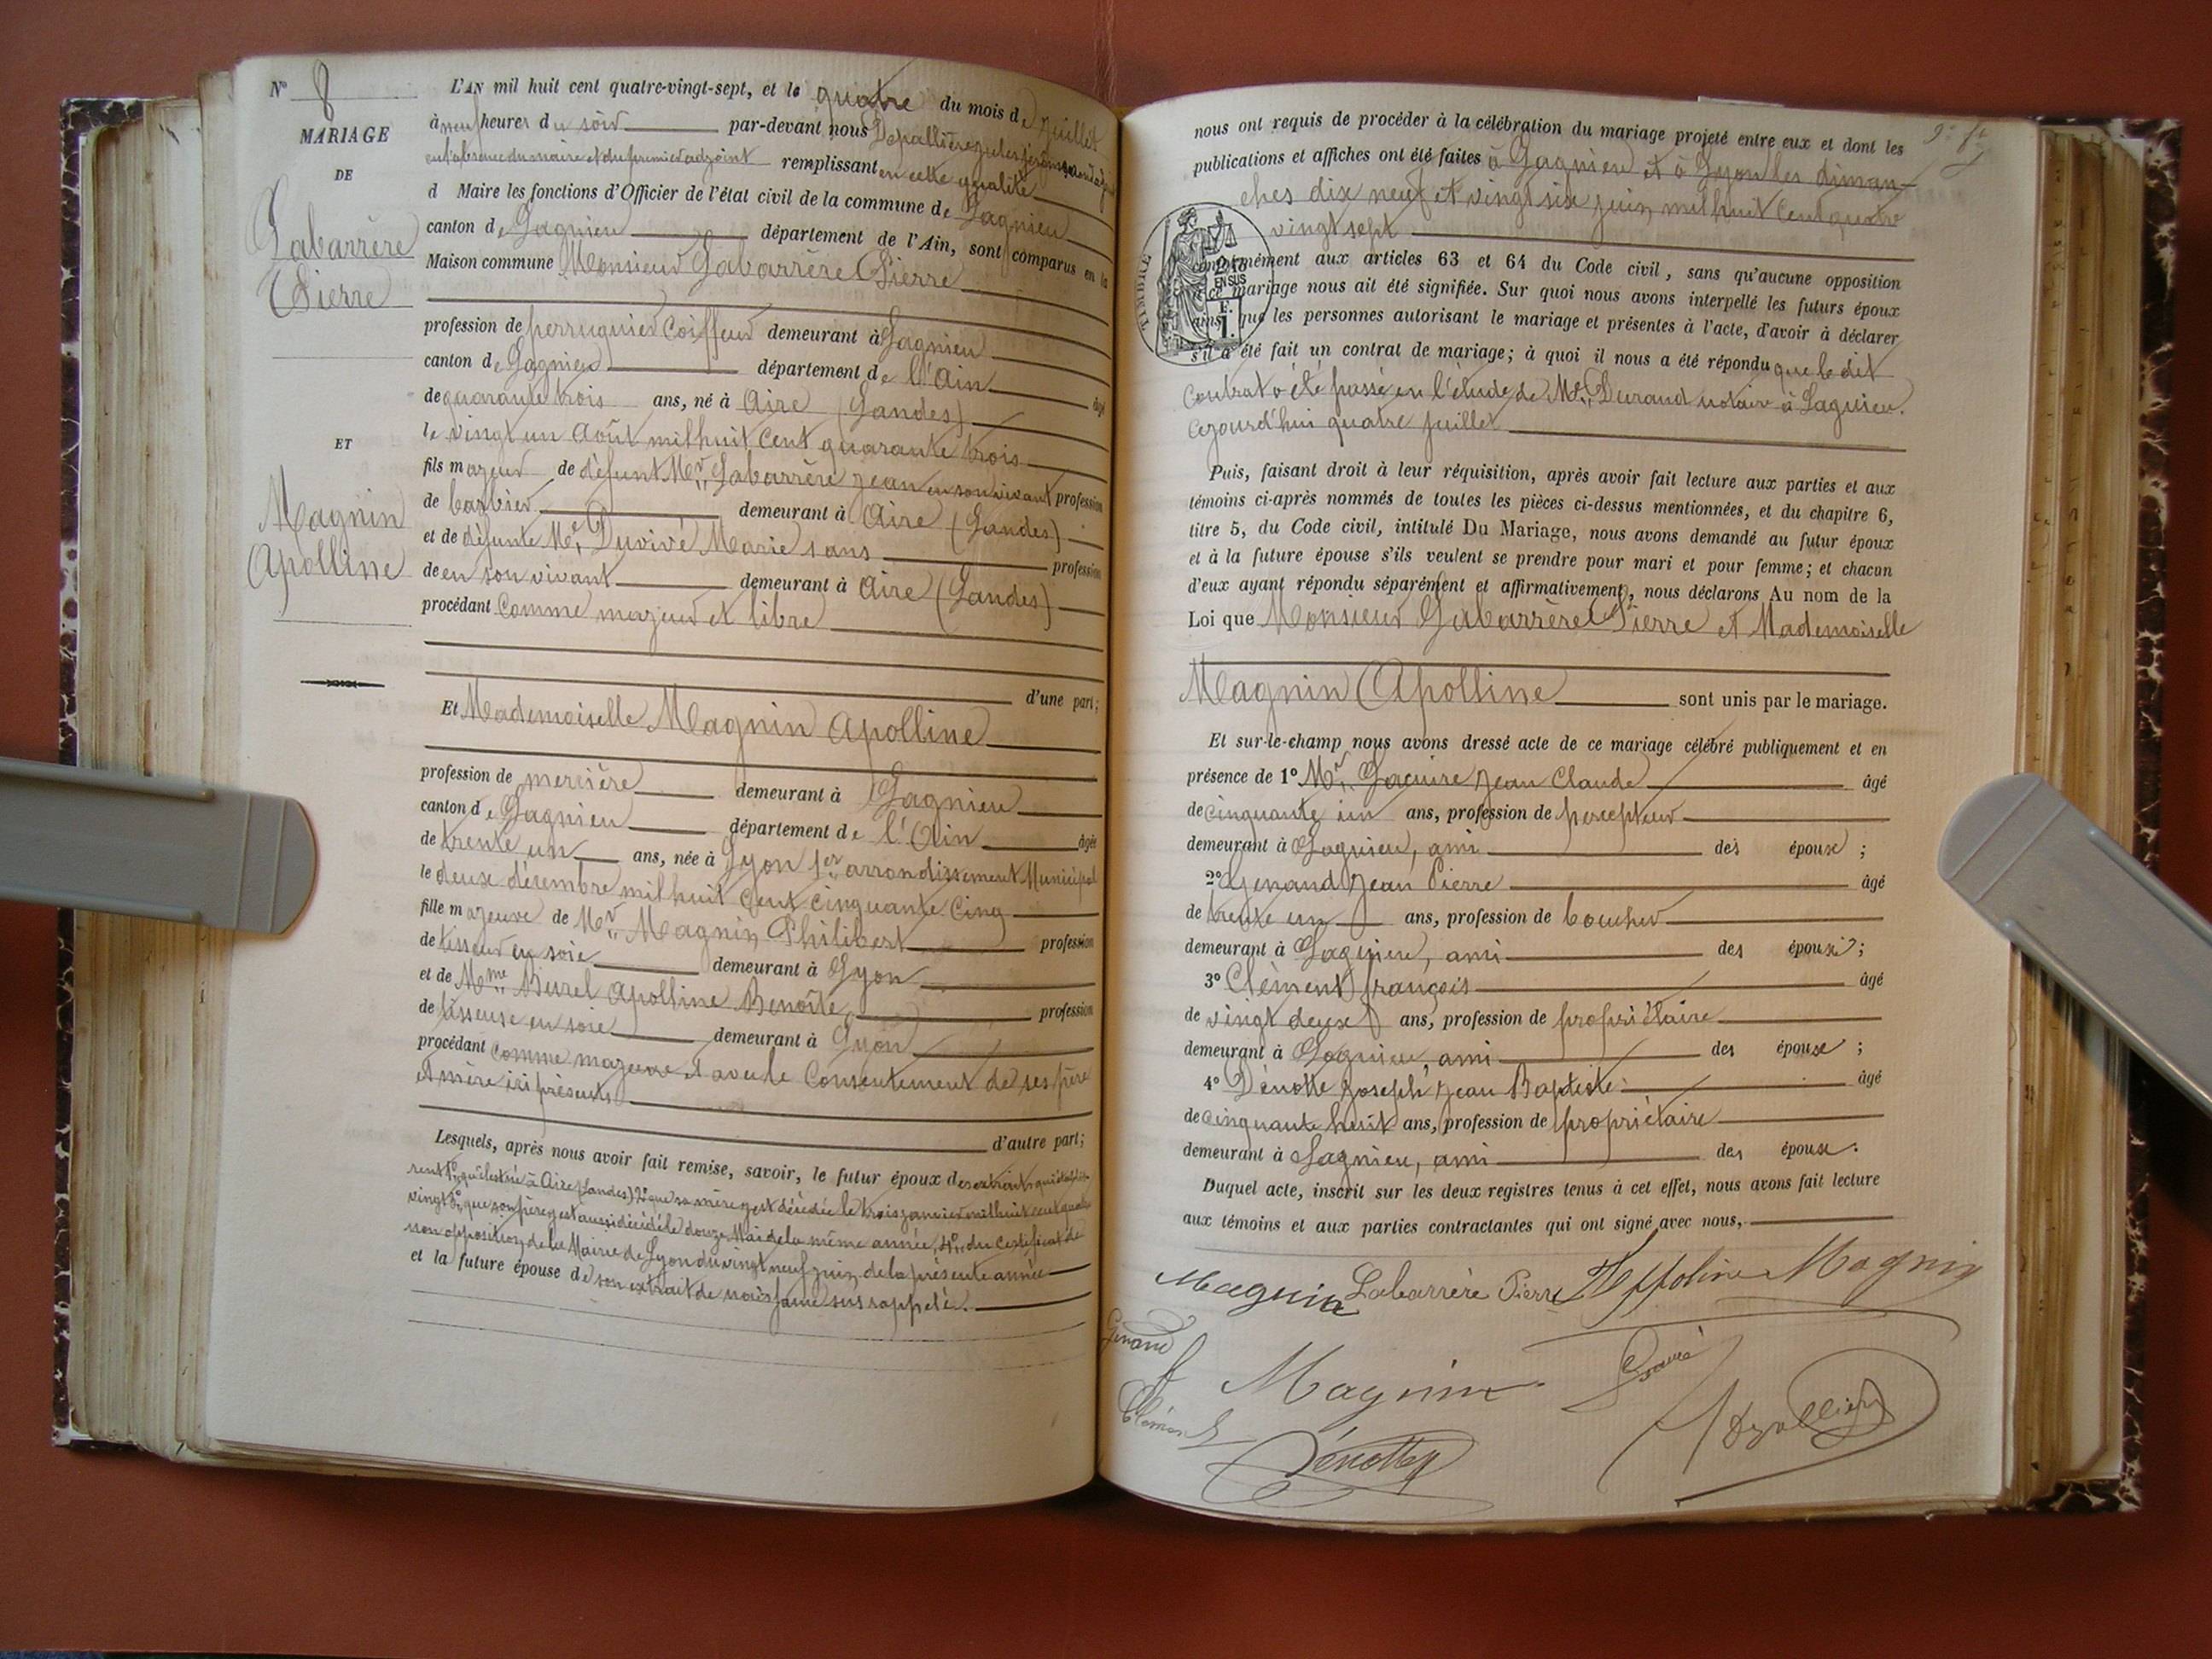 N° 8
MARIAGE
DE
Labarrère
Pierre
ET
Magnin
Apolline
L'AN mil huit cent quatre-vingt-sept, et le quatre du mois de juillet
à neuf heures du soir par-devant nous Depallière jules jérôme
en l'absence du maire et du premier adjoint remplissant en cette qualité
d Maire les fonctions d'Officier de l'état civil de la commune de Lagnieu
canton de Lagnieu département de l'Ain, sont comparus en la
Maison commune Monsieur Labarrère Pierre
profession de perruquier Coiffeur demeurant à Lagnieu
canton de Lagnieu département de l'Ain âgé
de quarante trois ans, né à Aire (Landes)
le vingt un Août mil huit Cent quarante trois
fils majeur de défunt Mr Labarrère jean en son vivant profession
de barbier demeurant à Aire (Landes)
et de défunte Me Duvivé Marie sans profession
de en son vivant demeurant à Aire (Landes)
procédant Comme majeur et libre
d'une part;
Et Mademoiselle Magnin Apolline
profession de mercière demeurant à Lagnieu
canton de Lagnieu département de l'Ain âgée
de trente un ans, née à Lyon 1er arrondissement Municipal
le deux décembre mil huit Cent Cinquante Cinq
fille majeure de Mr Magnin Philibert profession
de tisseur en soie demeurant à Lyon
et de Mme Burel Apolline Benoîte profession
de tisseuse en soie demeurant à Lyon
procédant comme majeure et avec le Consentement de ses père
et mère ici présents
d'autre part;
Lesquels, après nous avoir fait remise, savoir, le futur époux des extraits qui établis-
sent 1° qu'il est né à Aire (Landes) 2° que sa mère y est décédée le trois janvier mil huit cent quatre
vingt 3° que son père y est aussi décédé le douze Mai de la même année, 4° du Certificat de
non opposition de la Mairie de Lyon du vingt neuf juin de la présente année
et la future épouse de son extrait de naissance sus rappelé.
nous ont requis de procéder à la célébration du mariage projeté entre eux et dont les
publications et affiches ont été faites à Lagnieu et à Lyon les diman-
ches dix neuf et vingt six juin mil huit Cent quatre
vingt sept
TIMBRE
EN SUS
conformément aux articles 63 et 64 du Code civil, sans qu'aucune opposition
à ce mariage nous ait été signifiée. Sur quoi nous avons interpellé les futurs époux
ainsi que les personnes autorisant le mariage et présentes à l'acte, d'avoir à déclarer
s'il a été fait un contrat de mariage; à quoi il nous a été répondu que le dit
Contrat a été passé en l'étude de Me Durand notaire à Lagnieu.
Cejourd'hui quatre juillet
Puis, faisant droit à leur réquisition, après avoir fait lecture aux parties et aux
témoins ci-après nommés de toutes les pièces ci-dessus mentionnées, et du chapitre 6,
titre 5, du Code civil, intitulé Du Mariage, nous avons demandé au futur époux
et à la future épouse s'ils veulent se prendre pour mari et pour femme; et chacun
d'eux ayant répondu séparément et affirmativement, nous déclarons Au nom de la
Loi que Monsieur Labarrère Pierre et Mademoiselle
Magnin Apolline sont unis par le mariage.
Et sur-le-champ nous avons dressé acte de ce mariage célébré publiquement et en
présence de 1° Mr Jean Claude âgé
de Cinquante un ans, profession de percepteur
demeurant à Lagnieu, ami des époux ;
2° Genand Jean Pierre âgé
de trente un ans, profession de boucher
demeurant à Lagnieu, ami des époux ;
3° Clément françois âgé
de vingt deux ans, profession de propriétaire
demeurant à Lagnieu, ami des époux ;
4° Dénotte Joseph Jean Baptiste âgé
de Cinquante huit ans, profession de propriétaire
demeurant à Lagnieu, ami des époux.
Duquel acte, inscrit sur les deux registres tenus à cet effet, nous avons fait lecture
aux témoins et aux parties contractantes qui ont signé avec nous,
Magnin Labarrère Pierre Appoline Magnin
Genand
Magnin
Clément
Depallière